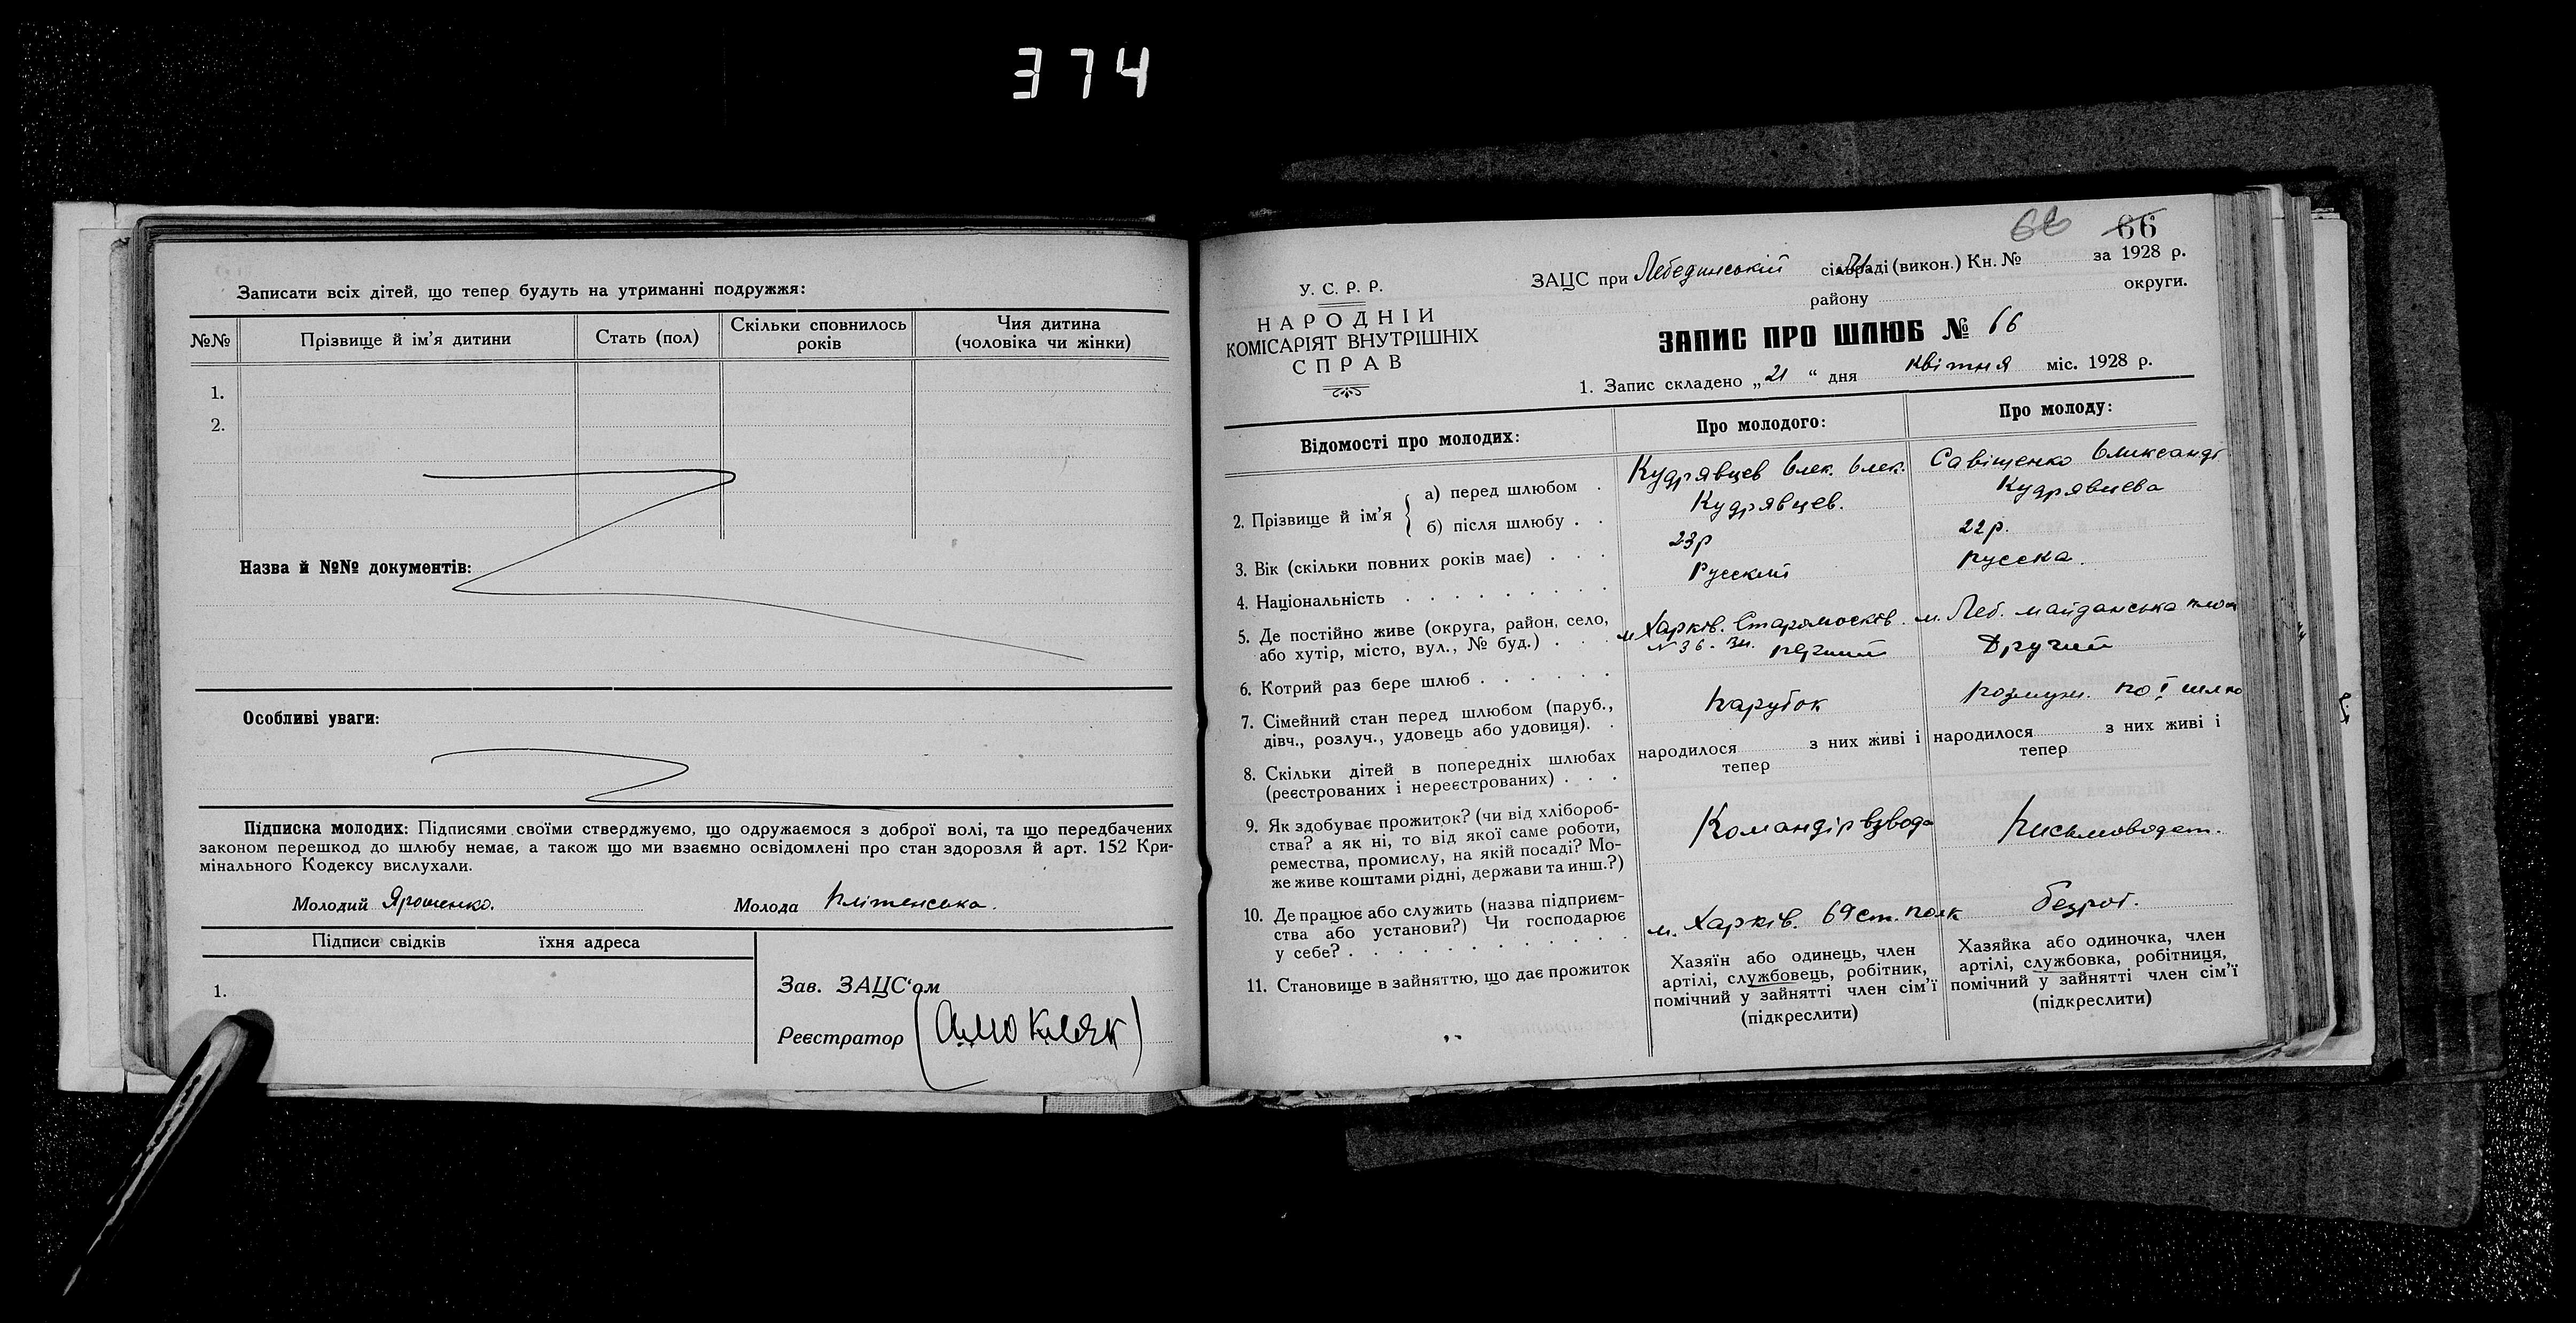 374
Записати всіх дітей, що тепер будуть на утриманні подружжя:
№№ Прізвище й ім'я дитини Стать (пол) Скільки сповнилось років Чия дитина (чоловіка чи жінки)
1.
2.
Назва й №№ документів:
Особливі уваги:
Підписка молодих: Підписями своїми стверджуємо, що одружаємося з доброї волі, та що передбачених
законом перешкод до шлюбу немає, а також що ми взаємно освідомлені про стан здоровля й арт. 152 Кри-
мінального Кодексу вислухали.
Молодий Ярошенко. Молода
Підписи свідків їхня адреса
1.
Зав. ЗАЦС'ом
Реєстратор
66 66
У. С. Р. Р.
НАРОДНІЙ
КОМІСАРІЯТ ВНУТРІШНІХ
СПРАВ
ЗАЦС при Лебединській сільраді (викон.) Кн. № за 1928 р.
району округи.
ЗАПИС ПРО ШЛЮБ № 66
1. Запис складено „21“ дня квітня міс. 1928 р.
Відомості про молодих: Про молодого: Про молоду:
2. Прізвище й ім'я { а) перед шлюбом . Кудрявцев Олек. Олек. Савіщенко Олександ
б) після шлюбу . . Кудрявцев. Кудрявцева
3. Вік (скільки повних років має) . . . 23р 22р.
4. Національність . . . . . . . . . . Русский русска.
5. Де постійно живе (округа, район, село,
або хутір, місто, вул., № буд.) . . . м. Харків. Старомосків. N 36. м. Леб. майданська
6. Котрий раз бере шлюб . . . . . . перший Другий
7. Сімейний стан перед шлюбом (паруб.,
дівч., розлуч., удовець або удовиця). . парубок розлуч. по I шлю
8. Скільки дітей в попередніх шлюбах
(реєстрованих і нереєстрованих) . . . народилося з них живі і тепер народилося з них живі і тепер
9. Як здобуває прожиток? (чи від хлібороб-
ства? а як ні, то від якої саме роботи,
ремества, промислу, на якій посаді? Мо-
же живе коштами рідні, держави та инш.?) Командір взвода письмоводат.
10. Де працює або служить (назва підприєм-
ства або установи?) Чи господарює
у себе? . . . . . . . . . . . м. Харків. 69 ст. полк безроб.
11. Становище в зайняттю, що дає прожиток
Хазяїн або одинець, член
артілі, службовець, робітник,
помічний у зайнятті член сім'ї
(підкреслити)
Хазяйка або одиночка, член
артілі, службовка, робітниця,
помічний у зайнятті член сім'ї
(підкреслити)